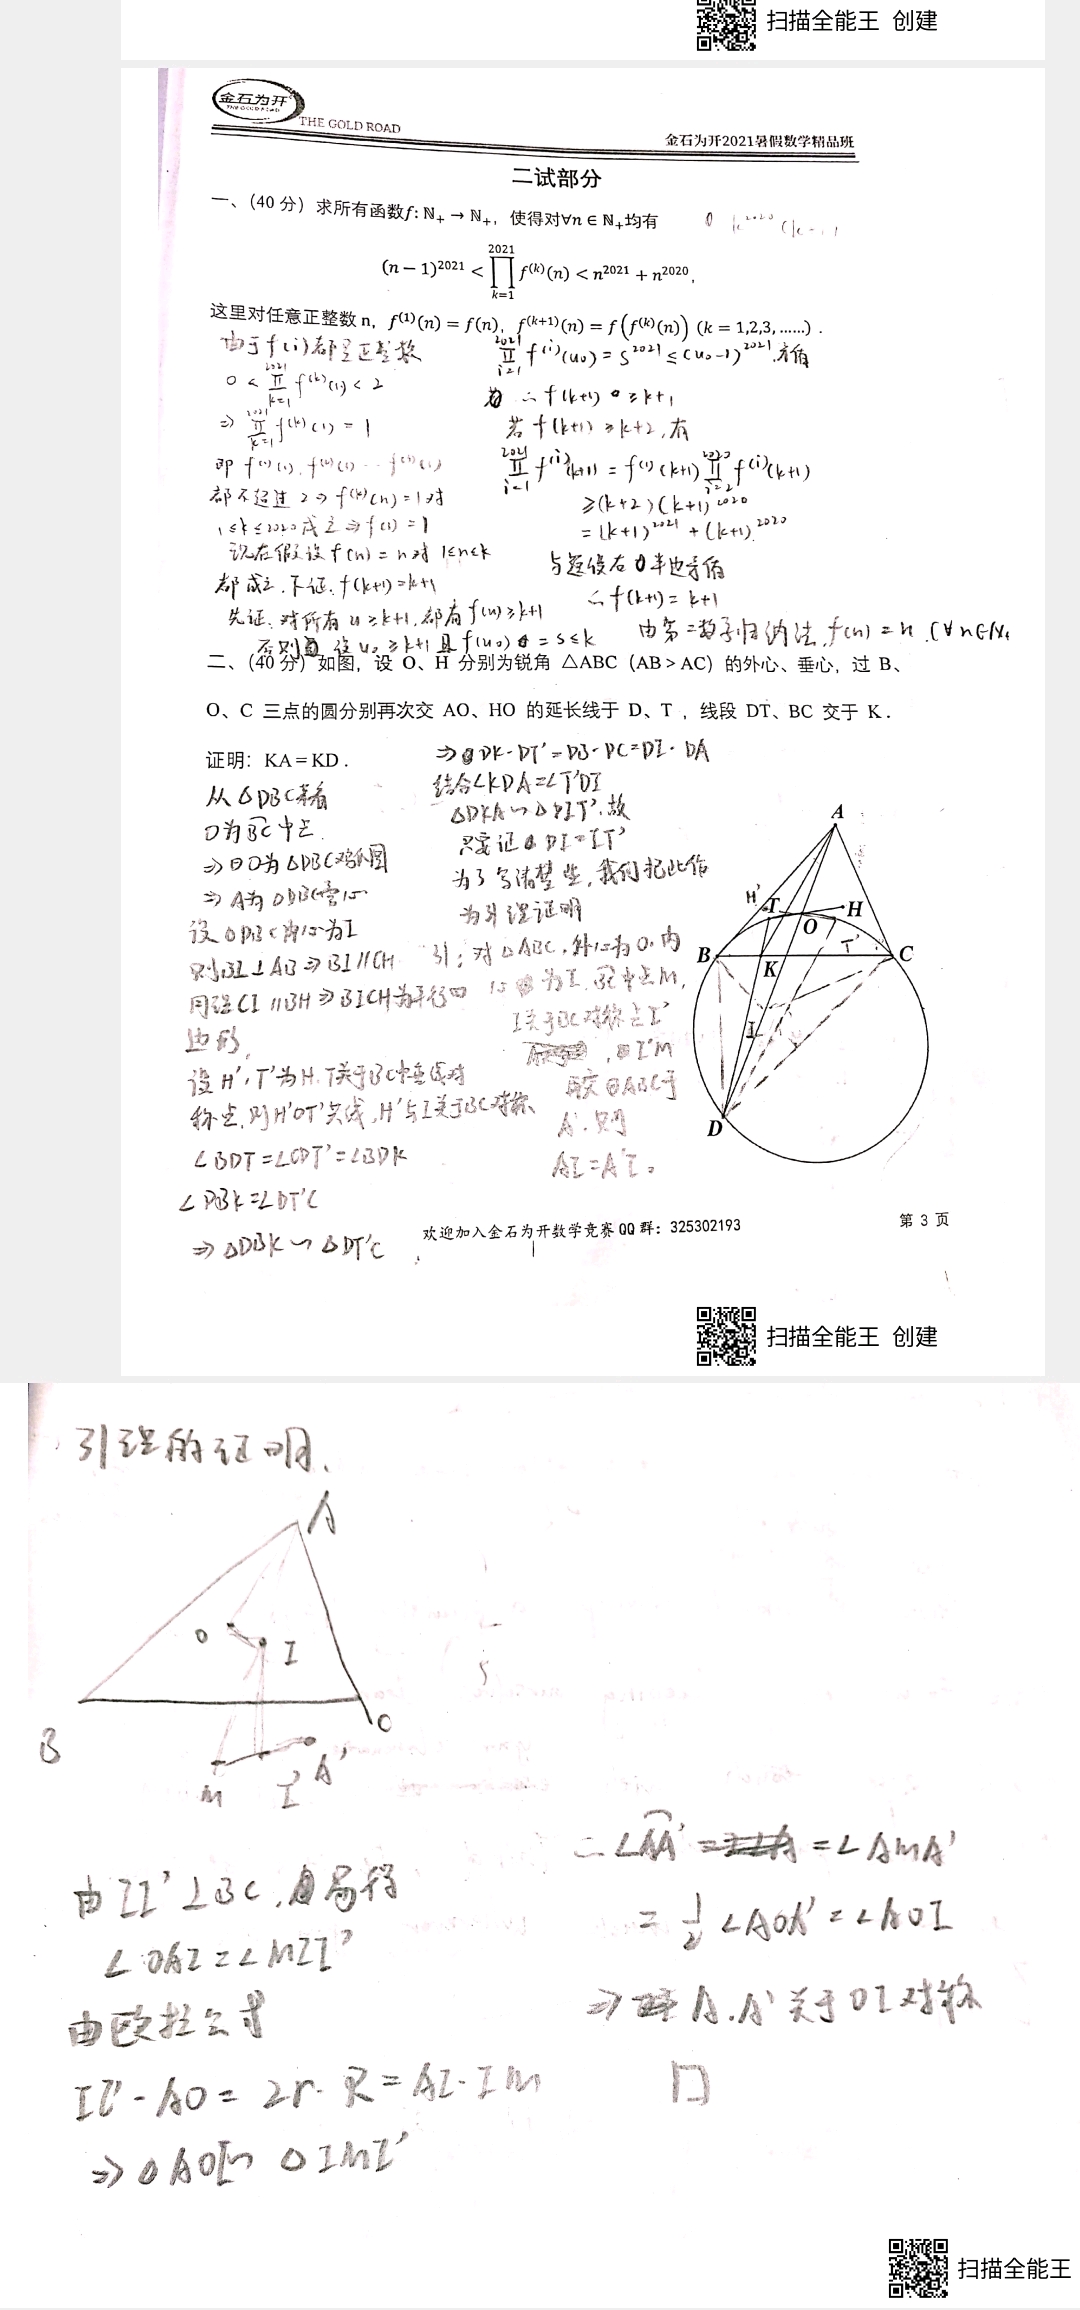 扫描全能王 创建
金石为开
THE GOLD ROAD
THE GOLD ROAD
金石为开2021暑假数学精品班
二试部分
一、(40 分) 求所有函数f: ℕ₊ → ℕ₊, 使得对∀n ∈ ℕ₊均有
(n − 1)²⁰²¹ < ∏_{k=1}^{2021} f⁽ᵏ⁾(n) < n²⁰²¹ + n²⁰²⁰,
这里对任意正整数 n, f⁽¹⁾(n) = f(n), f⁽ᵏ⁺¹⁾(n) = f(f⁽ᵏ⁾(n)) (k = 1,2,3, ......) .
由于f(i)都是正整数
0 < ∏_{k=1}^{2021} f⁽ᵏ⁾(1) < 2
⇒ ∏_{k=1}^{2021} f⁽ᵏ⁾(1) = 1
即 f⁽¹⁾(1), f⁽²⁾(1) ⋯
都不超过 2 ⇒ f⁽ᵏ⁾(n)=1对
1≤k≤2020成立⇒f(1)=1
现在假设 f(n)=n对 1≤n≤k
都成立.下证.f(k+1)=k+1
先证.对所有 u≥k+1,都有f(u)≥k+1
否则 设u₀≥k+1且f(u₀)=s≤k
∏_{i=1}^{2021} f⁽ⁱ⁾(u₀)=s²⁰²¹≤(u₀-1)²⁰²¹.矛盾
∴ f(k+1) ≥k+1
若 f(k+1) ≥k+2,有
∏_{i=1}^{2021} f⁽ⁱ⁾(k+1) = f⁽¹⁾(k+1) ∏_{i=2}^{2020} f⁽ⁱ⁾(k+1)
≥(k+2)(k+1)²⁰²⁰
=(k+1)²⁰²¹+(k+1)²⁰²⁰
与题设右半边矛盾
∴f(k+1)=k+1
由第二数学归纳法,f(n)=n.(∀n∈N₊
二、(40 分) 如图, 设 O、H 分别为锐角 △ABC (AB > AC) 的外心、垂心, 过 B、
O、C 三点的圆分别再次交 AO、HO 的延长线于 D、T , 线段 DT、BC 交于 K .
证明: KA = KD .
从△DBC来看
O为BC中点.
⇒
⇒ A为△DBC旁心
设△DBC内心为I
则BI⊥AB⇒BI//CH
同理CI//BH⇒BICH为平行四
边形,
设H',T'为H,T关于BC中垂线对
称点,则H'OT'共线,H'与I关于BC对称、
∠BDT=∠CDT'=∠BDK
∠DBK=∠DT'C
⇒△DBK∽△DT'C
⇒DK·DT'=DB·DC=DI·DA
结合∠KDA=∠T'DI
△DKA∽△DIT',故
只要证DI=IT'
为了写清楚些,我们把此作
为引理证明
引:对△ABC,外心为O,内
心为I,BC中点M,
I关于BC对称点I'
,I'M
再交⊙ABC于
A',则
AI=A'I。
A
H'
T
H
O
T'
B
K
C
I
D
欢迎加入金石为开数学竞赛 QQ 群: 325302193
第 3 页
扫描全能王 创建
引理的证明、
A
O
I
B
C
M
I'
A'
由II'⊥BC,易得
∠OAI=∠MII'
由欧拉公式
II'·AO=2r·R=AI·IM
⇒△AOI∽△IMI'
∴∠AA' = ∠AMA'
= ½∠AOA'=∠AOI
⇒ A.A'关于OI对称
□
扫描全能王